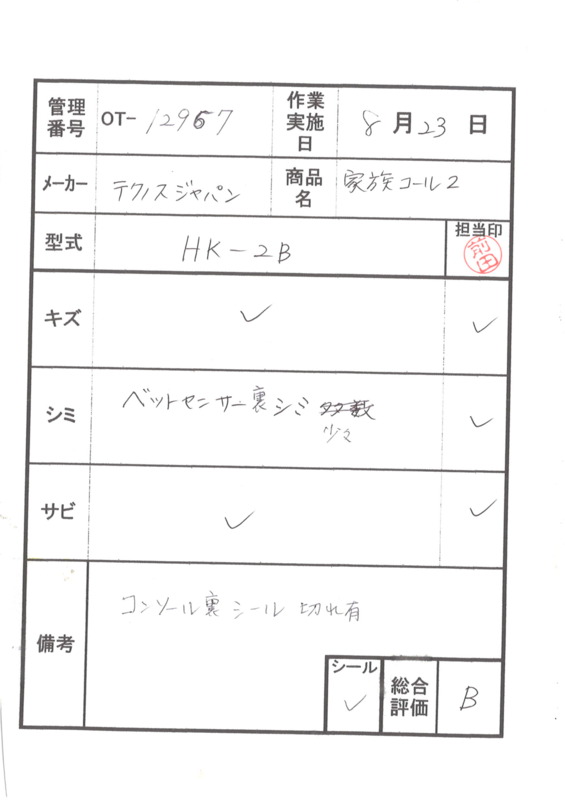 管理番号 OT-12967 作業実施日 8月23日
メーカー テクノスジャパン 商品名 家族コール2
型式 HK-2B 担当印 前田
キズ ✓ ✓
シミ ベットセンサー裏シミ 多数 ✓
少々
サビ ✓ ✓
備考 コンソール裏シール切れ有
シール ✓ 総合評価 B